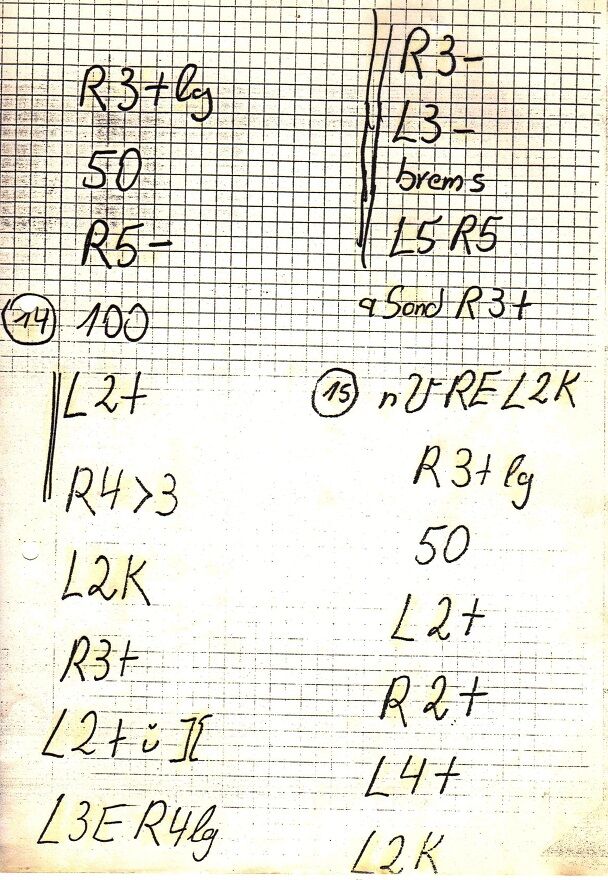 R3+lg
50
R5-
14 100
L2+
R4>3
L2K
R3+
L2+ü][
L3E R4lg
R3-
L3-
brems
L5 R5
R3+
15 RE L2K
R3+lg
50
L2+
R2+
L4+
L2K